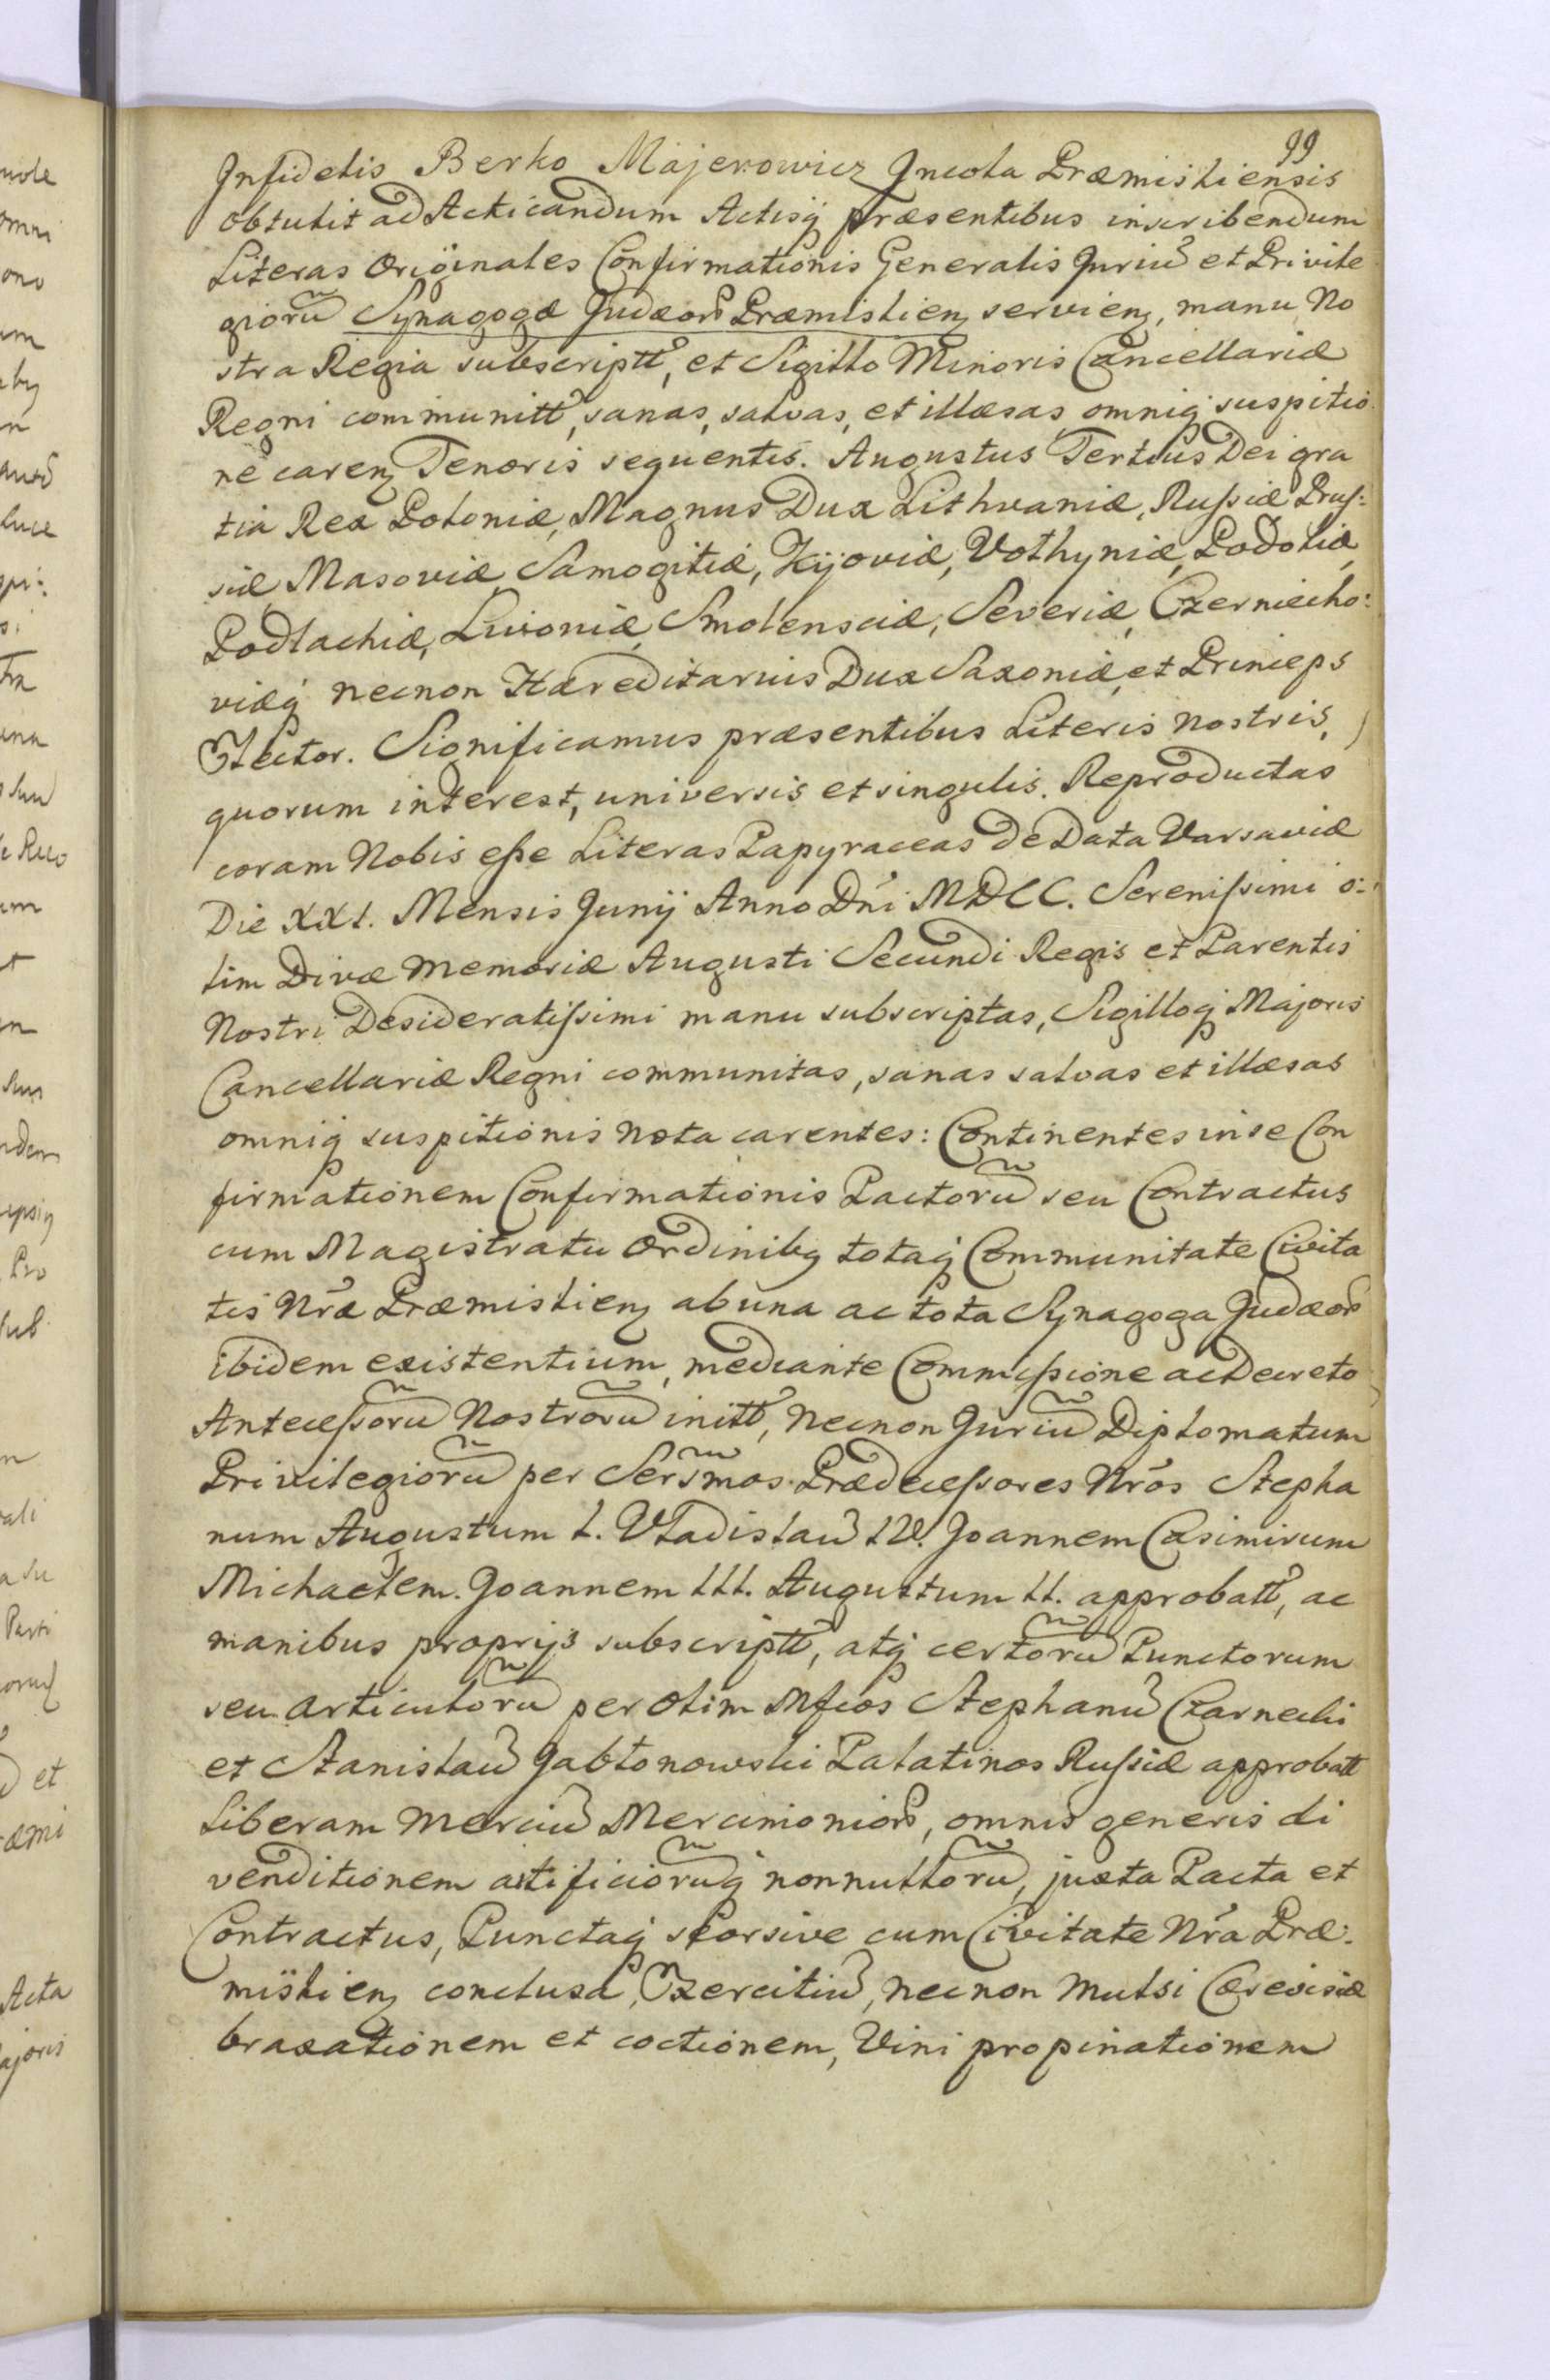 99
Infidelis Berko Majerowicz Incola Præmisliensis
obtulit ad Acticandum Actisq præsentibus inscribendum
Literas Originales Confirmationis Generalis Juriũ et Privile
giorũ Synagogæ Judæor Præmislien servien, manu No
stra Regia subscriptt, et Sigillo Minoris Cancellariæ
Regni communitt, sanas, salvas, et illæsas omniq suspitio
ne caren Tenoris sequentis. Augustus Tertius Dei gra
tia Rex Poloniæ, Magnus Dux Lithvaniæ, Rußiæ Pruß:
siæ Masoviæ Samogitiæ, Kijoviæ, Volhyniæ, Podoliæ,
Podlachiæ, Livoniæ, Smolensciæ, Severiæ, Czerniecho:
viæq necnon Hæreditarius Dux Saxoniæ, et Princeps
Elector. Significamus præsentibus Literis nostris,
quorum interest, universis et singulis. Reproductas
coram Nobis eße Literas Papyraceas de Data Varsaviæ
Die XXI. Mensis Junij Anno Dni MDCC. Serenißimi o:
lim Divæ Memoriæ Augusti Secundi Regis et Parentis
Nostri Desideratißimi manu subscriptas, Sigilloq Majoris
Cancellariæ Regni communitas, sanas salvas et illæsas
omniq suspitionis nota carentes: Continentes in se Con
firmationem Confirmationis Pactorũ seu Contractus
cum Magistratu Ordinibq totaq Communitate Civita
tis Nræ Præmislien ab una ac tota Synagoga Judæor
ibidem existentium, mediante Commißione ac Decreto
Anteceßorũ Nostrorũ initt, necnon Juriũ Diplomatum
Privilegiorũ per Serm̃os Prædeceßores Nros Stepha
num Augustum I. Vladislaũ IV. Joannem Casimirum
Michaelem. Joannem III. Augustum II. approbatt, ac
manibus proprijs subscriptt, atq certorũ Punctorum
seu articulorũ per olim Mfcos Stephanũ Czarnecki
et Stanislaũ Jabłonowski Palatinos Rußiæ approbatt
Liberam Merciũ Mercimonior, omnis generis di
venditionem artificiorũq nonnullorũ, juxta Pacta et
Contractus, Punctaq seorsive cum Civitate Nra Præ:
mislien conclusa, Exercitiũ, necnon Mulsi Cerevisiæ
braxationem et coctionem, Vini propinationem